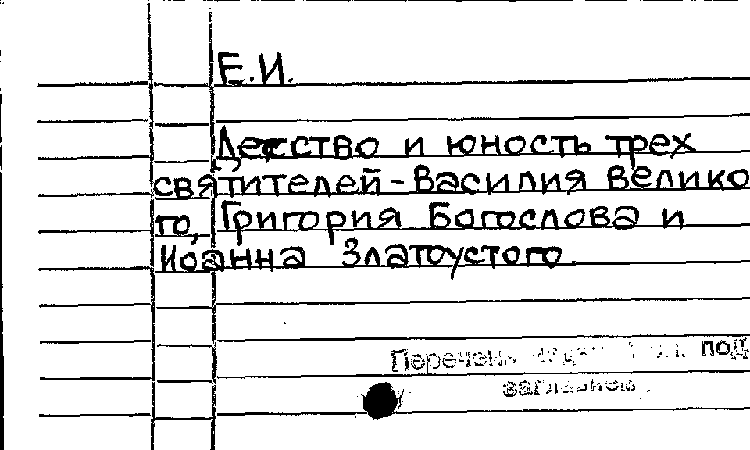 Е.И.
Детство и юность трех
святителей-Василия Велико
го, Григория Богослова и
Иоанна Златоустого
Перечень под
заглавием